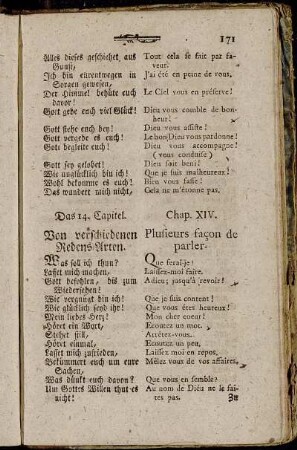 171
Alles dieses geschiehet aus
Gunst,
Ich bin eurentwegen in
Sorgen gewesen,
Der Himmel behüte euch
davor!
Gott gebe euch viel Glück!
Gott stehe euch bey!
Gott vergebe es euch!
Gott begleite euch!
Gott sey gelobet!
Wie unglücklich bin ich!
Wohl bekomme es euch!
Das wundert mich nicht,
Tout cela se fait par fa-
veur.
J'ai été en peine de vous.
Le Ciel vous en préserve!
Dieu vous comble de bon-
heur!
Dieu vous assiste!
Le bon Dieu vous pardonne!
Dieu vous accompagne!
(vous conduise)
Dieu soit beni!
Que je suis malheureux!
Bien vous fasse!
Cela ne m'étonne pas.
Das 14. Capitel.
Von verschiedenen
Redens-Arten.
Chap. XIV.
Plusieurs façon de
parler.
Was soll ich thun?
Lasset mich machen,
Gott befohlen, bis zum
Wiedersehen!
Wie vergnügt bin ich!
Wie glücklich seyd ihr!
Mein liebes Herz!
Höret ein Wort,
Stehet still,
Höret einmal,
Lasset mich zufrieden,
Bekümmert euch um eure
Sachen,
Was dünkt euch davon?
Um Gottes Willen thut es
nicht!
Que ferai-je?
Laissez-moi faire.
Adieu; jusqu'à revoir!
Que je suis content!
Que vous êtes heureux!
Mon cher cœur!
Ecoutez un mot.
Arrêtez-vous.
Ecoutez un peu,
Laissez moi en repos,
Mêlez vous de vos affaires,
Que vous en semble?
Au nom de Dieu ne le fai-
tes pas.
Zu